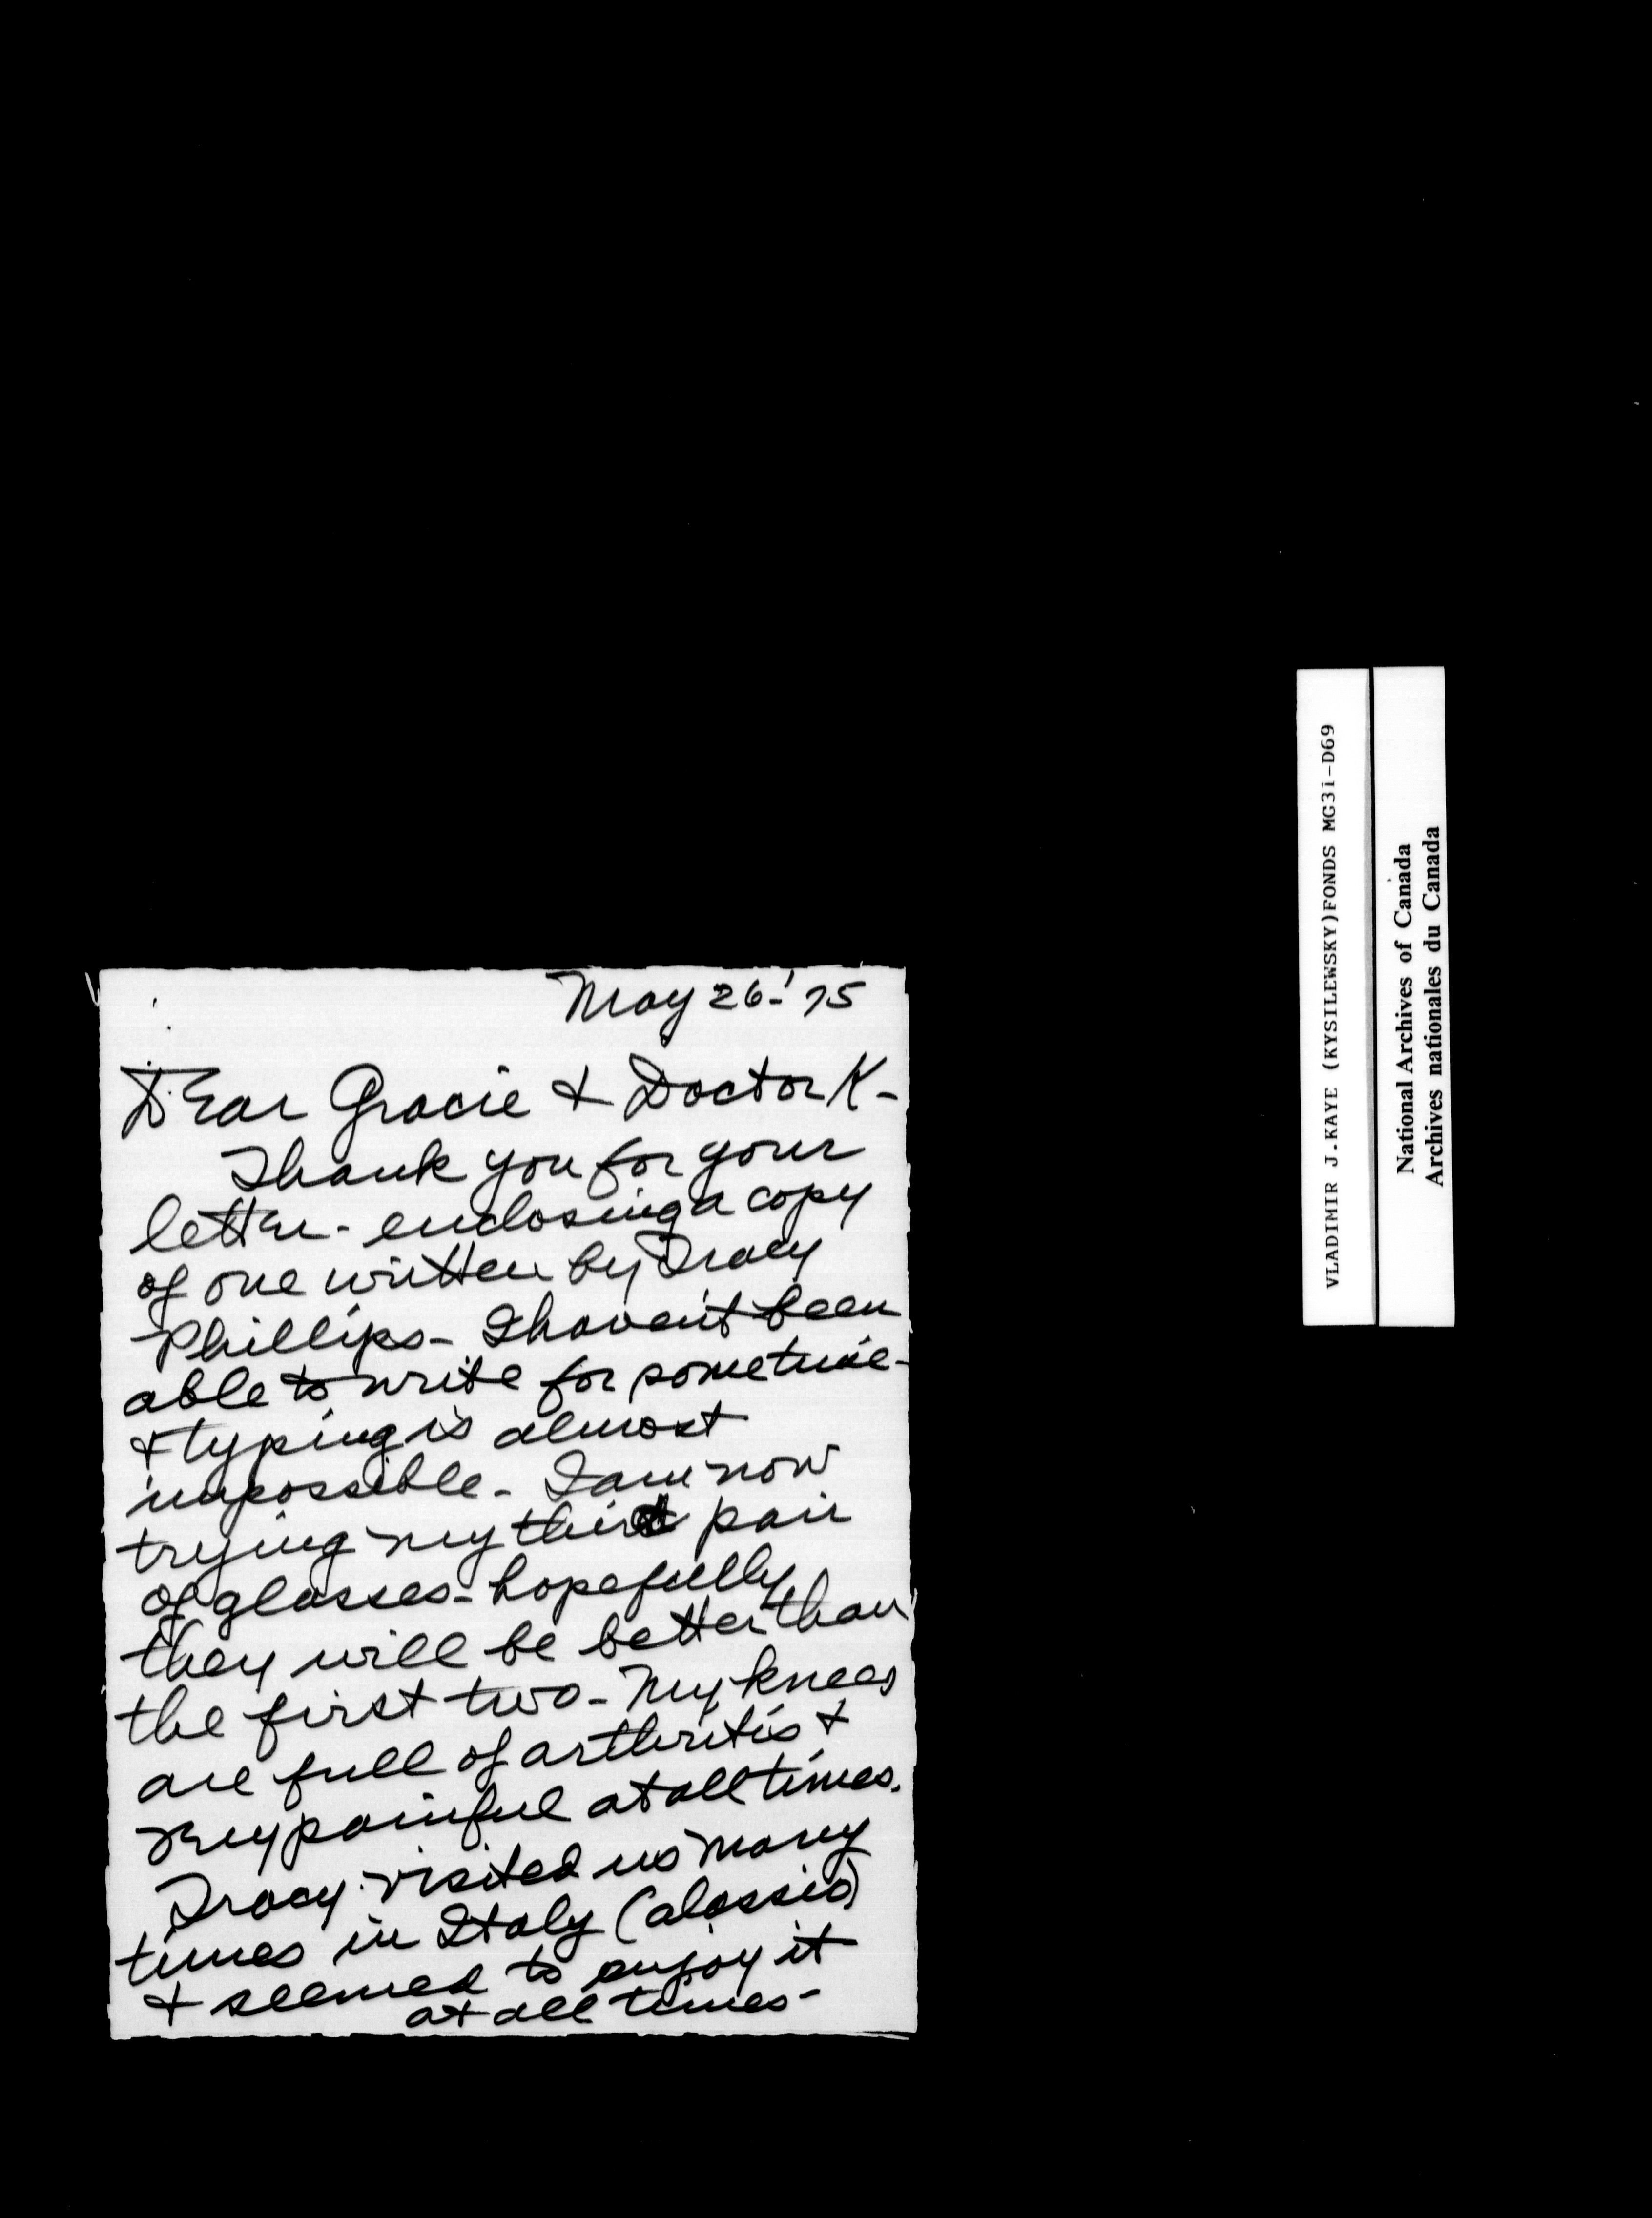 May 26-'75
Dear Gracie & Doctor K-
Thank you for your
letter - enclosing a copy
of one written by Tracy
Phillips - I haven't been
able to write for sometime -
& typing is almost
impossible - I am now
trying my third pair
of glasses - hopefully
they will be better than
the first two - My knees
are full of arthritis &
very painful at all times.
Tracy visited us many
times in Italy (Alassio)
& seemed to enjoy it
at all times -
VLADIMIR J.KAYE (KYSILEWSKY)FONDS MG31-D69
National Archives of Canada
Archives nationales du Canada